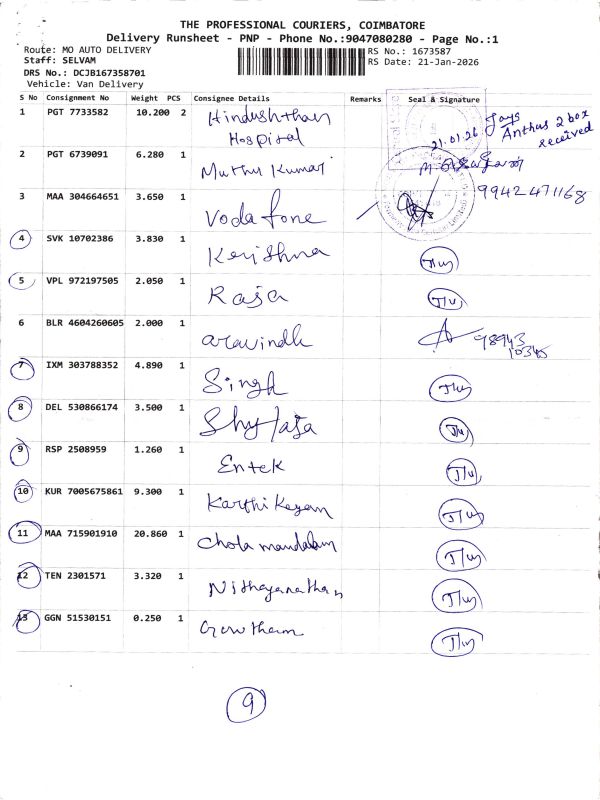 THE PROFESSIONAL COURIERS, COIMBATORE
Delivery Runsheet - PNP - Phone No.:9047080280 - Page No.:1
Route: MO AUTO DELIVERY
RS No.: 1673587
Staff: SELVAM
RS Date: 21-Jan-2026
DRS No.: DCJB167358701
Vehicle: Van Delivery
S No Consignment No Weight PCS Consignee Details Remarks Seal & Signature
1 PGT 7733582 10.200 2 Hindushthan
Hospital
21.01.26
Anthus 2 box
received
2 PGT 6739091 6.280 1 Muthu Kumar
3 MAA 304664651 3.650 1 Vodafone 9942471168
4 SVK 10702386 3.830 1 Kerishna
5 VPL 972197505 2.050 1 Raja
6 BLR 4604260605 2.000 1 aravindh 98943
10345
7 IXM 303788352 4.890 1 Singh
8 DEL 530866174 3.500 1 Shylaja
9 RSP 2508959 1.260 1 Entek
10 KUR 7005675861 9.300 1 Karthi Keyan
11 MAA 715901910 20.860 1 Chola mandalam
12 TEN 2301571 3.320 1 Nithayanathan
13 GGN 51530151 0.250 1 Gowtham
9